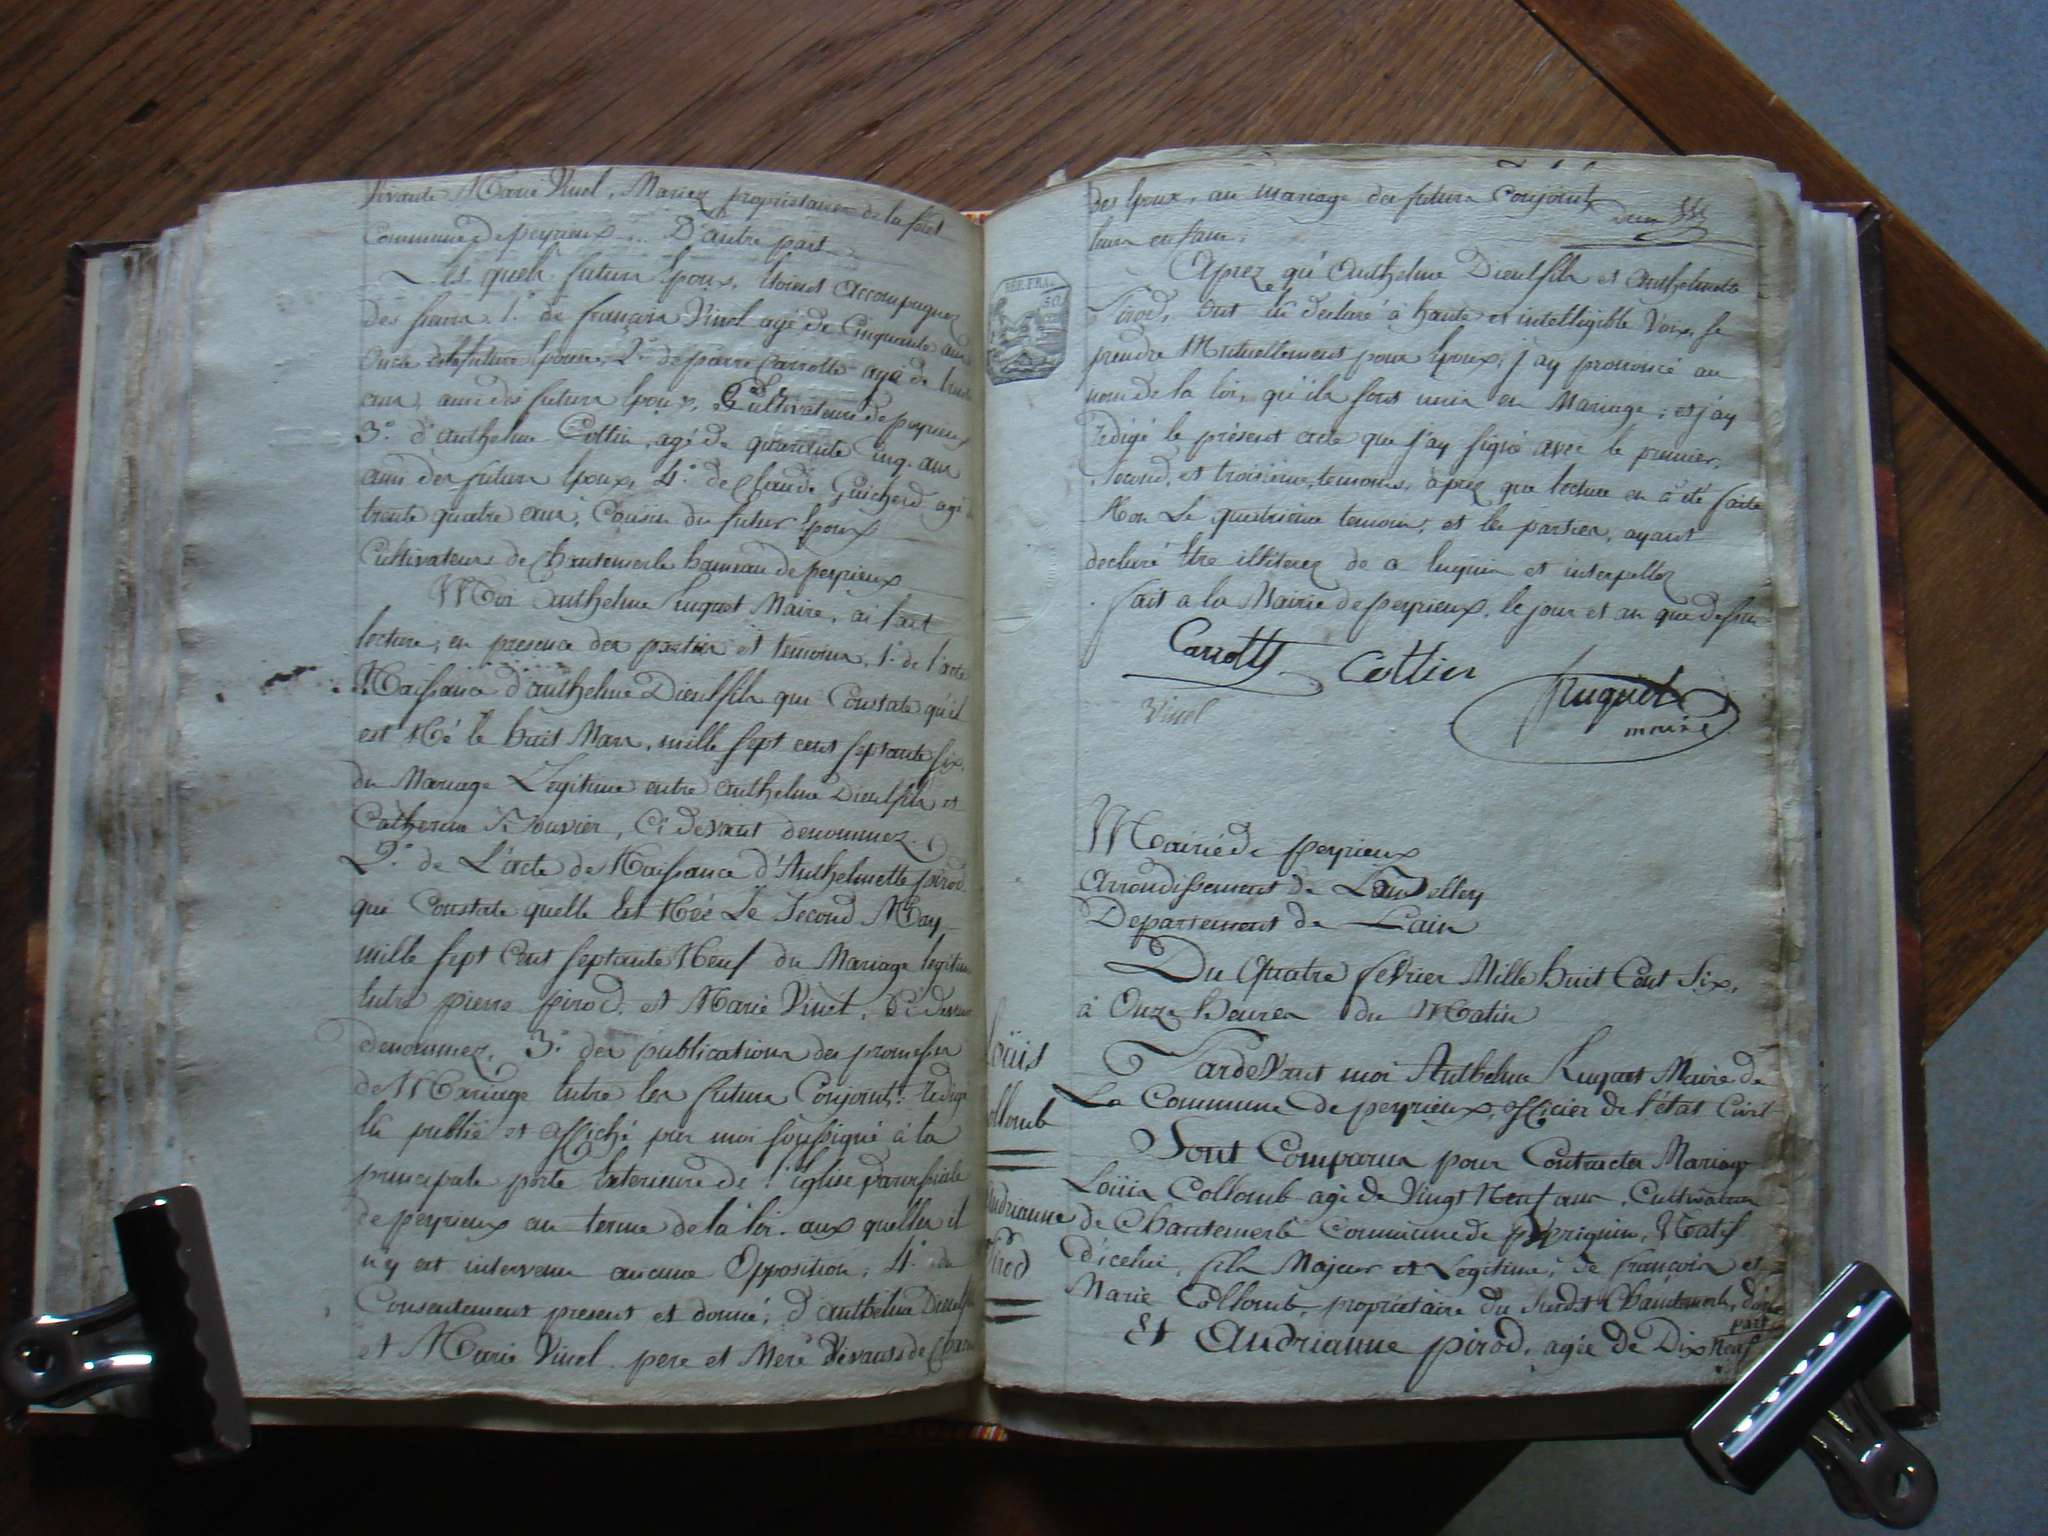 vivante Marie Vinel, Mariez propriétaires de la forêt
Commune de peyrieux... D'autre part
Les quels futurs Epoux, Etoient accompagnez
des sieurs 1.° de françois Vinel agé de Cinquante ans
Oncle de la future Epouse, 2.° de pierre Carrotte agé de trente
ans, ami des futurs Epoux, Cultivateurs de peyrieux
3.° d'anthelme Cottin, agé de quarante cinq ans
ami des futurs Epoux, 4.° de Claude Guicherd agé de
trente quatre ans, Cousin du futur Epoux
Cultivateurs de Chantemerle hameau de peyrieux
Moi Anthelme Luquet Maire, ai fait
lecture, en presence des parties et temoins, 1.° de l'acte
Naissance d'anthelme Dieulfils qui Constate qu'il
est Né le huit Mars, mille sept cent septante six,
du Mariage Légitime entre anthelme Dieulfils et
Catherine Bouvier, Ci devant denommez.
2.° de L'acte de Naissance d'Anthelmette pirod
qui Constate quelle Est Née Le Second May
mille sept Cent septante Neuf du Mariage legitime
Entre pierre pirod, et Marie Vinel, Ci devant
denommez, 3.° des publications des promesses
de Mariage Entre les futurs Conjoints redigé
lu publié et affiché par moi soussigné à la
principale porte Exterieure de l'Eglise paroissiale
de peyrieux au terme de la loi. aux quelles il
n'y est intervenu aucune Opposition, 4.° du
Consentement present et donné, d'anthelme Dieulfils
et Marie Vinel pere et Mere Vivants de Chacun
des Epoux, au mariage des futurs Conjoints
leurs enfans.
Aprez qu'Anthelme Dieulfils et Anthelmette
Pirod, ont eu declaré à haute et intelligible Voix, se
prendre Mutuellement pour Epoux, j'ay prononcé au
nom de la loi, qu'ils sont unis en Mariage, et j'ay
rédigé le présent acte que j'ay signé avec le premier,
second, et troisieme, temoins, aprez que lecture en a été faite
Non Le quatrieme temoin, et les parties, ayant
declaré Etre illiterez de ce enquis et interpellez
fait a la Mairie de peyrieux, le jour et an que dessus
Carrotte Cottin
Vinel
Luquet
maire
REP. FRA.
50
Mairie de peyrieux
Arrondissement de Belley
Departement de Lain
Du Quatre fevrier Mille huit Cent Six,
à Onze heures du Matin
Pardevant moi Anthelme Luquet Maire de
La Commune de peyrieux, officier de l'état Civil
Sont Comparus pour Contracter Mariage
Loüis Collomb agé de Vingt Neuf ans, Cultivateur
de Chantemerle Commune de peyrieux, Natif
d'icelui, fils Majeur et Legitime, de françois et
Marie Collomb, propriétaire du susdit Chantemerle, d'une
part
Et Audrianne pirod, agée de Dix Neuf
Loüis
Collomb
Audrianne
Pirod